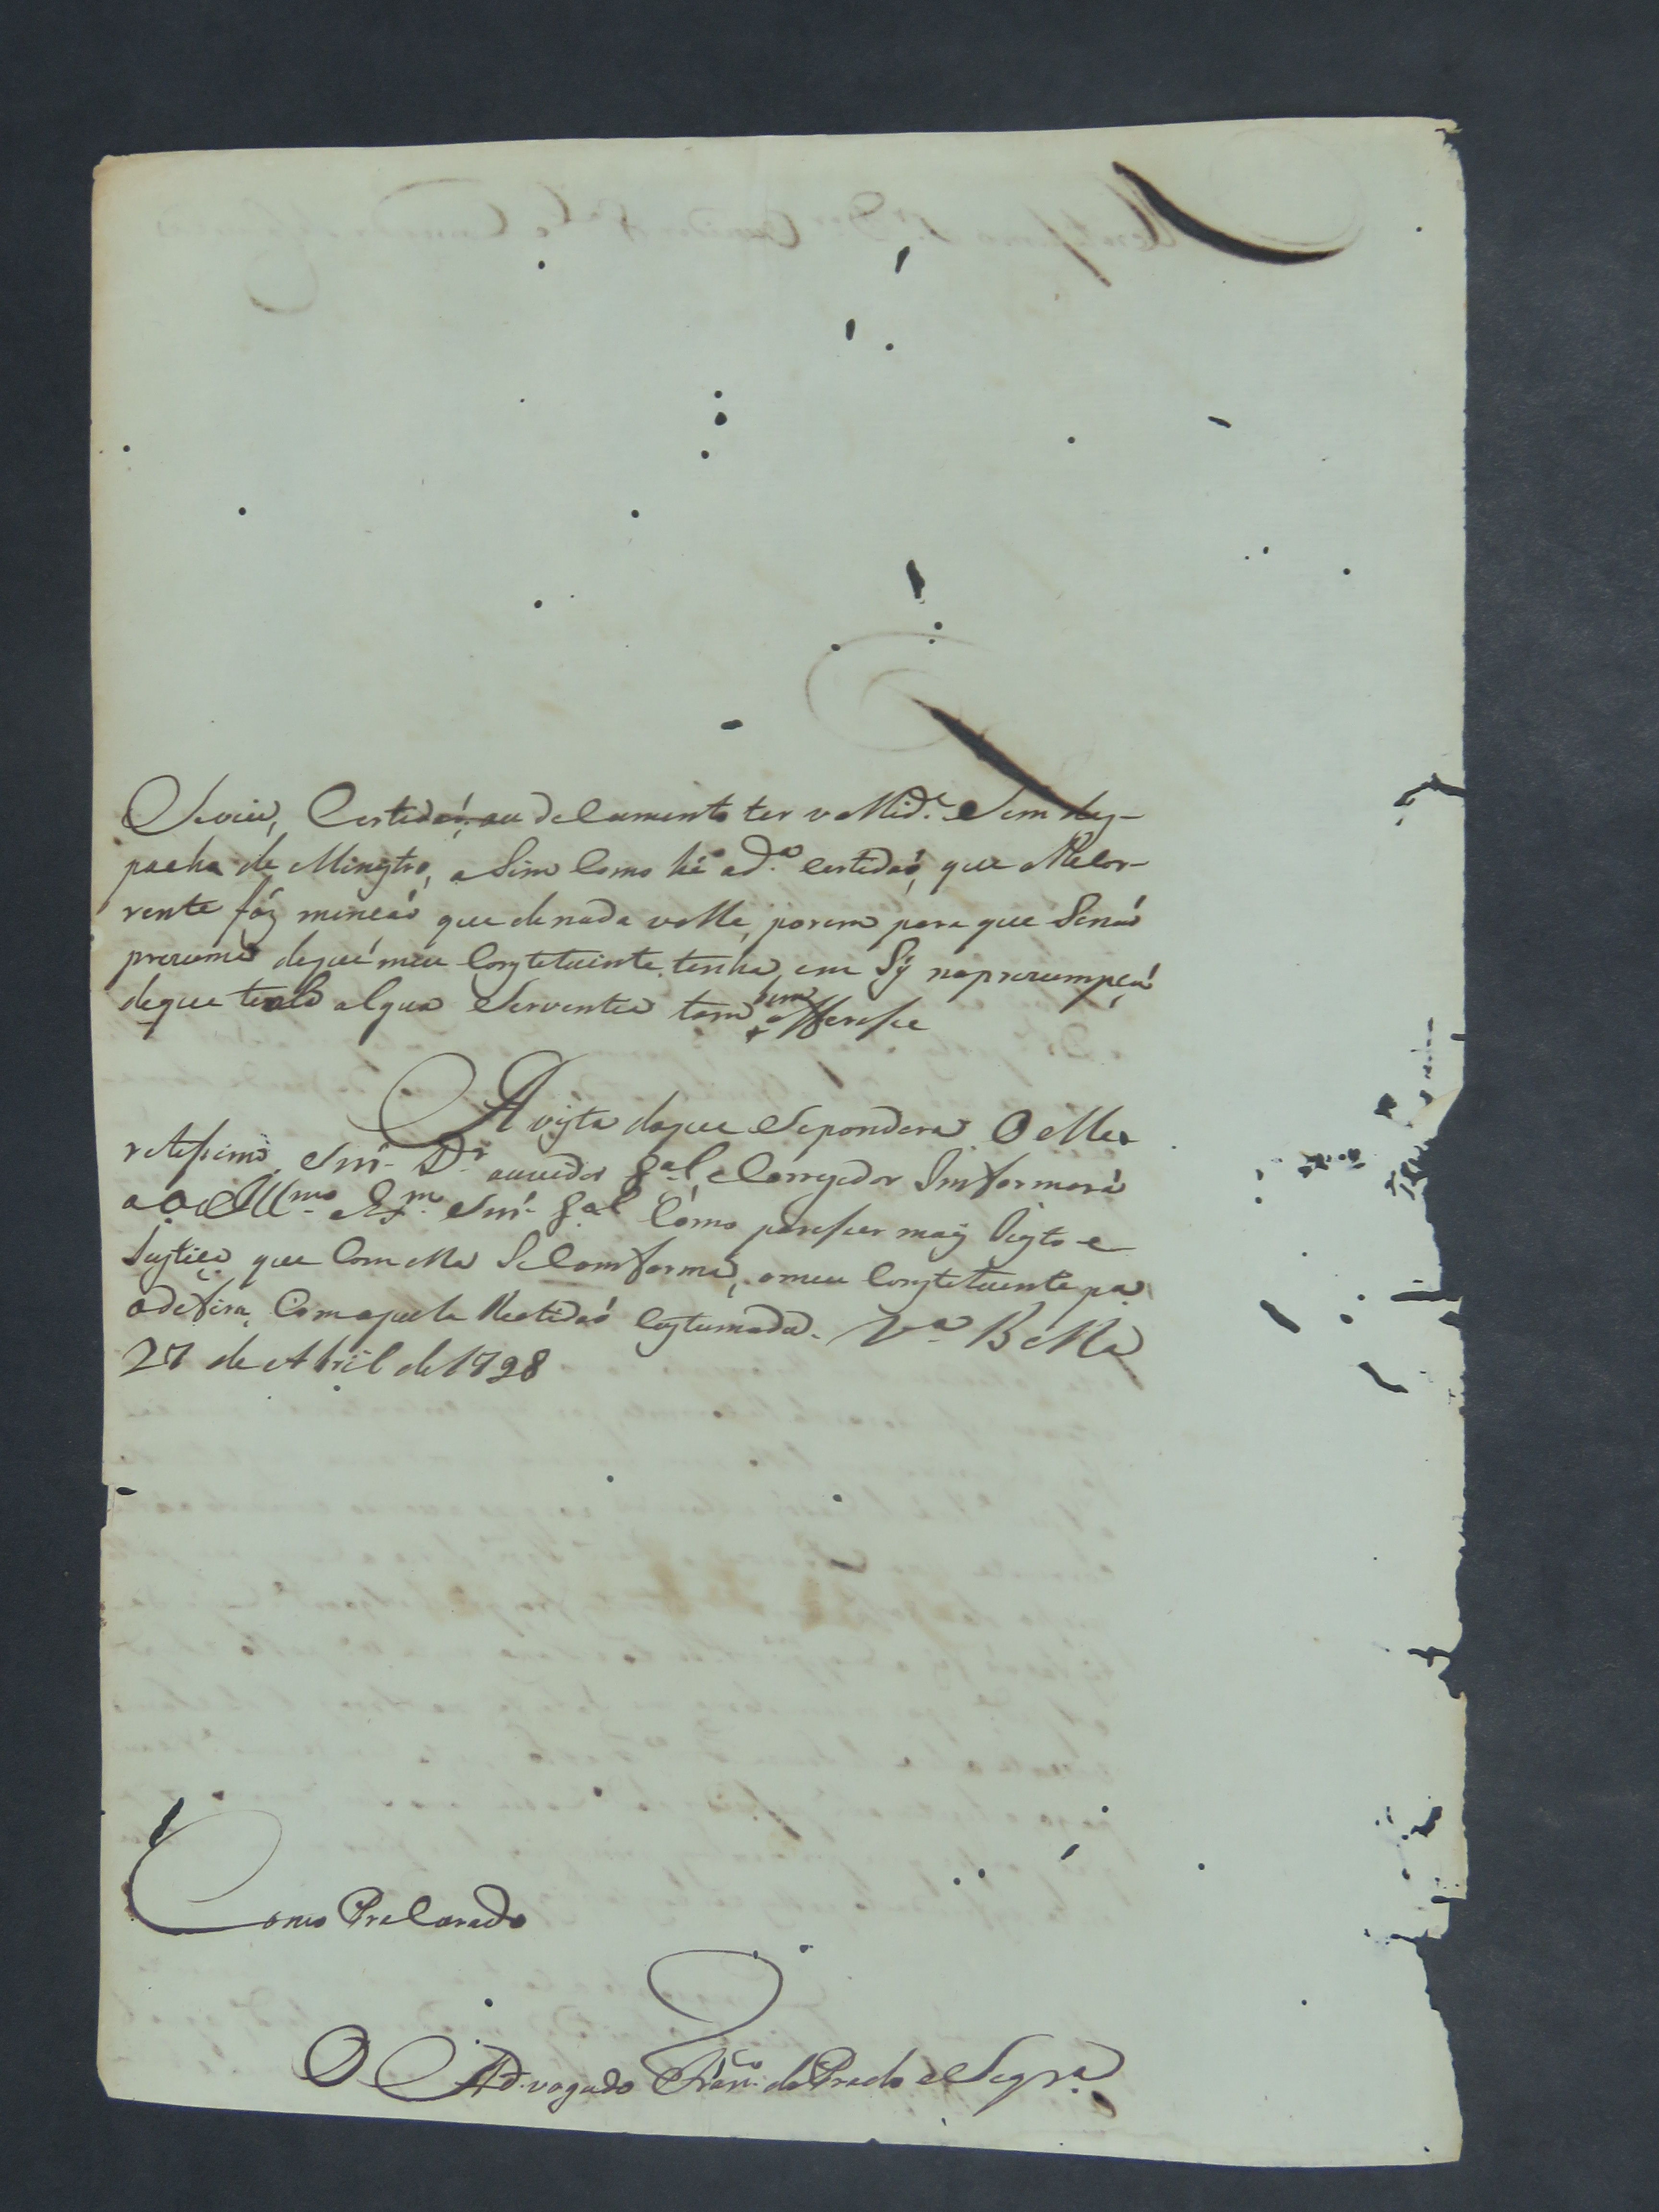 Se viu, Certidaó, ou documento ter vallid.e Sem des-
pacho de Ministro, aSim Como hé ad.a certidaó, que oRecor-
rente fáz mincaó que de nada valle, porem para que Senaó
prezuma deque meu Constetuinte tenha em Sÿ naprezumpçaó
deque tenho algua Serventia tam bem offeresse
A vista do que Sepondera O Me
retissimo Snr. D.r ouvidor g.al, e Corregedor Imformará
ao Ill.mo e Ex.mo Snr. g.al Como paresser mais Visto e
Justiça que Com ella Se Comforma, o meu Constetuinte pa
odefira, Com aquela Rectidaó Custumada. V.a Bella
27 de Abril de 1798
Como Procurado
O Advogado Fran.co do Prado e Seqr.a